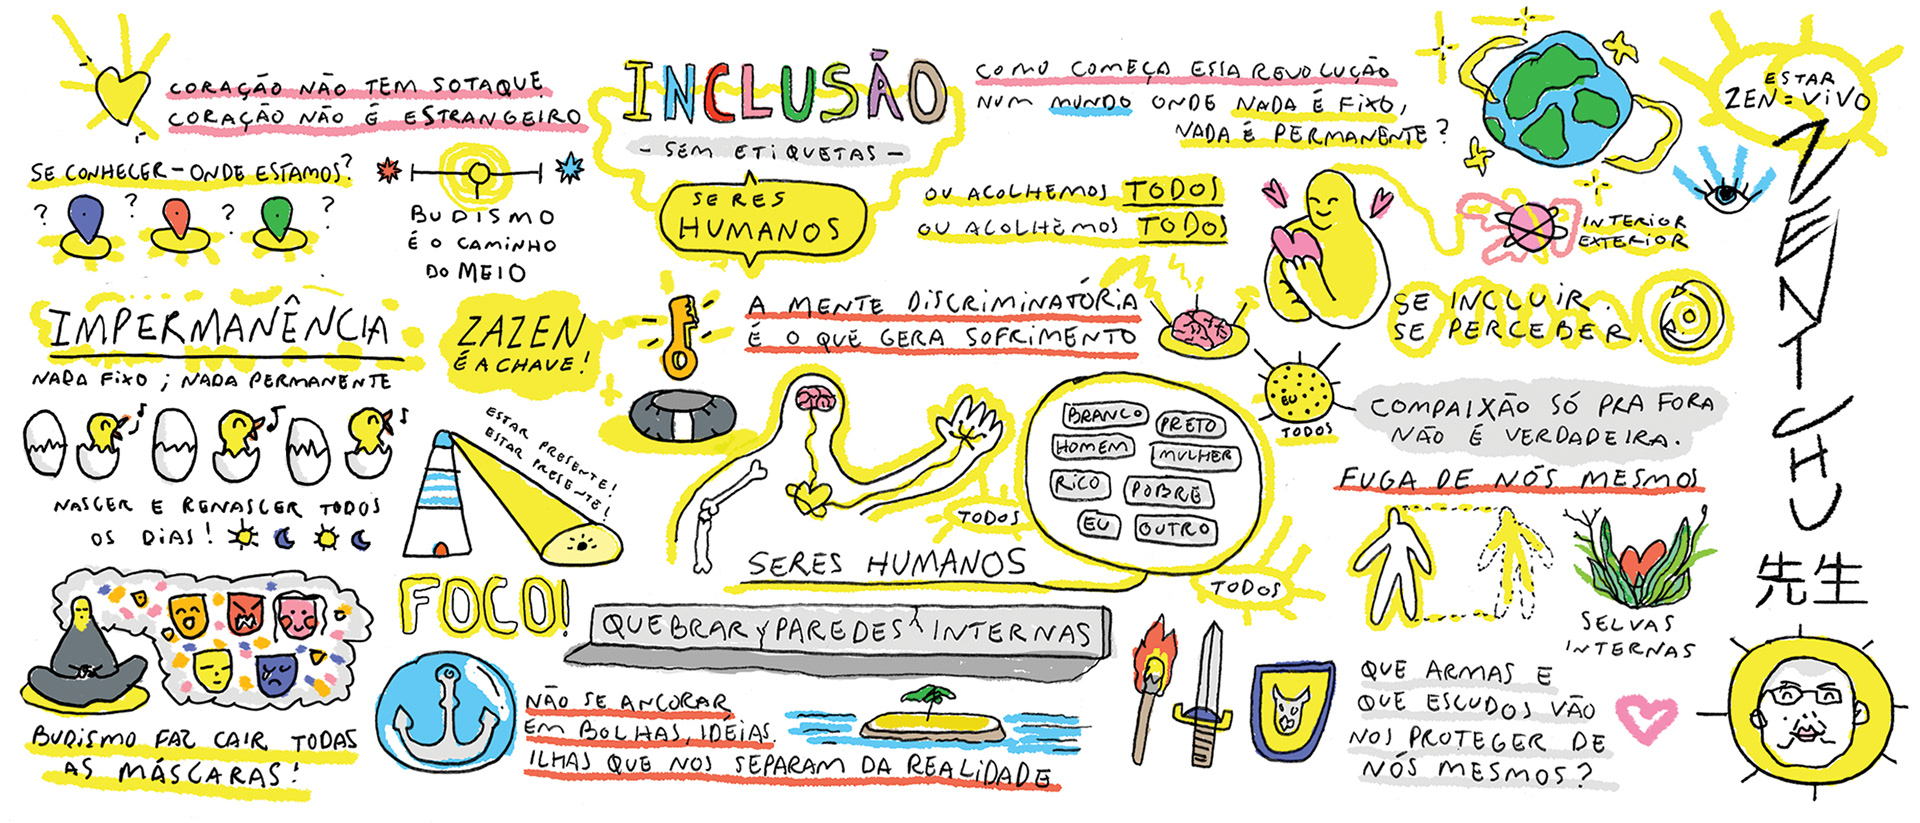 CORAÇÃO NÃO TEM SOTAQUE
CORAÇÃO NÃO É ESTRANGEIRO
SE CONHECER - ONDE ESTAMOS?
? ? ? ?
BUDISMO
É O CAMINHO
DO MEIO
IMPERMANÊNCIA
NADA FIXO ; NADA PERMANENTE
NASCER E RENASCER TODOS
OS DIAS!
BUDISMO FAZ CAIR TODAS
AS MÁSCARAS!
ZAZEN
É A CHAVE!
ESTAR PRESENTE!
ESTAR PRESENTE!
FOCO!
INCLUSÃO
- SEM ETIQUETAS -
SERES
HUMANOS
COMO COMEÇA ESSA REVOLUÇÃO
NUM MUNDO ONDE NADA É FIXO,
NADA É PERMANENTE?
OU ACOLHEMOS TODOS
OU ACOLHEMOS TODOS
A MENTE DISCRIMINATÓRIA
É O QUE GERA SOFRIMENTO
BRANCO
PRETO
HOMEM
MULHER
RICO
POBRE
EU
OUTRO
TODOS
SERES HUMANOS
TODOS
QUEBRAR PAREDES INTERNAS
NÃO SE ANCORAR
EM BOLHAS, IDÉIAS.
ILHAS QUE NOS SEPARAM DA REALIDADE
INTERIOR
EXTERIOR
SE INCLUIR.
SE PERCEBER.
EU
TODOS
COMPAIXÃO SÓ PRA FORA
NÃO É VERDADEIRA.
FUGA DE NÓS MESMOS
SELVAS
INTERNAS
QUE ARMAS E
QUE ESCUDOS VÃO
NOS PROTEGER DE
NÓS MESMOS?
ESTAR
ZEN = VIVO
ZENTCHU
先生